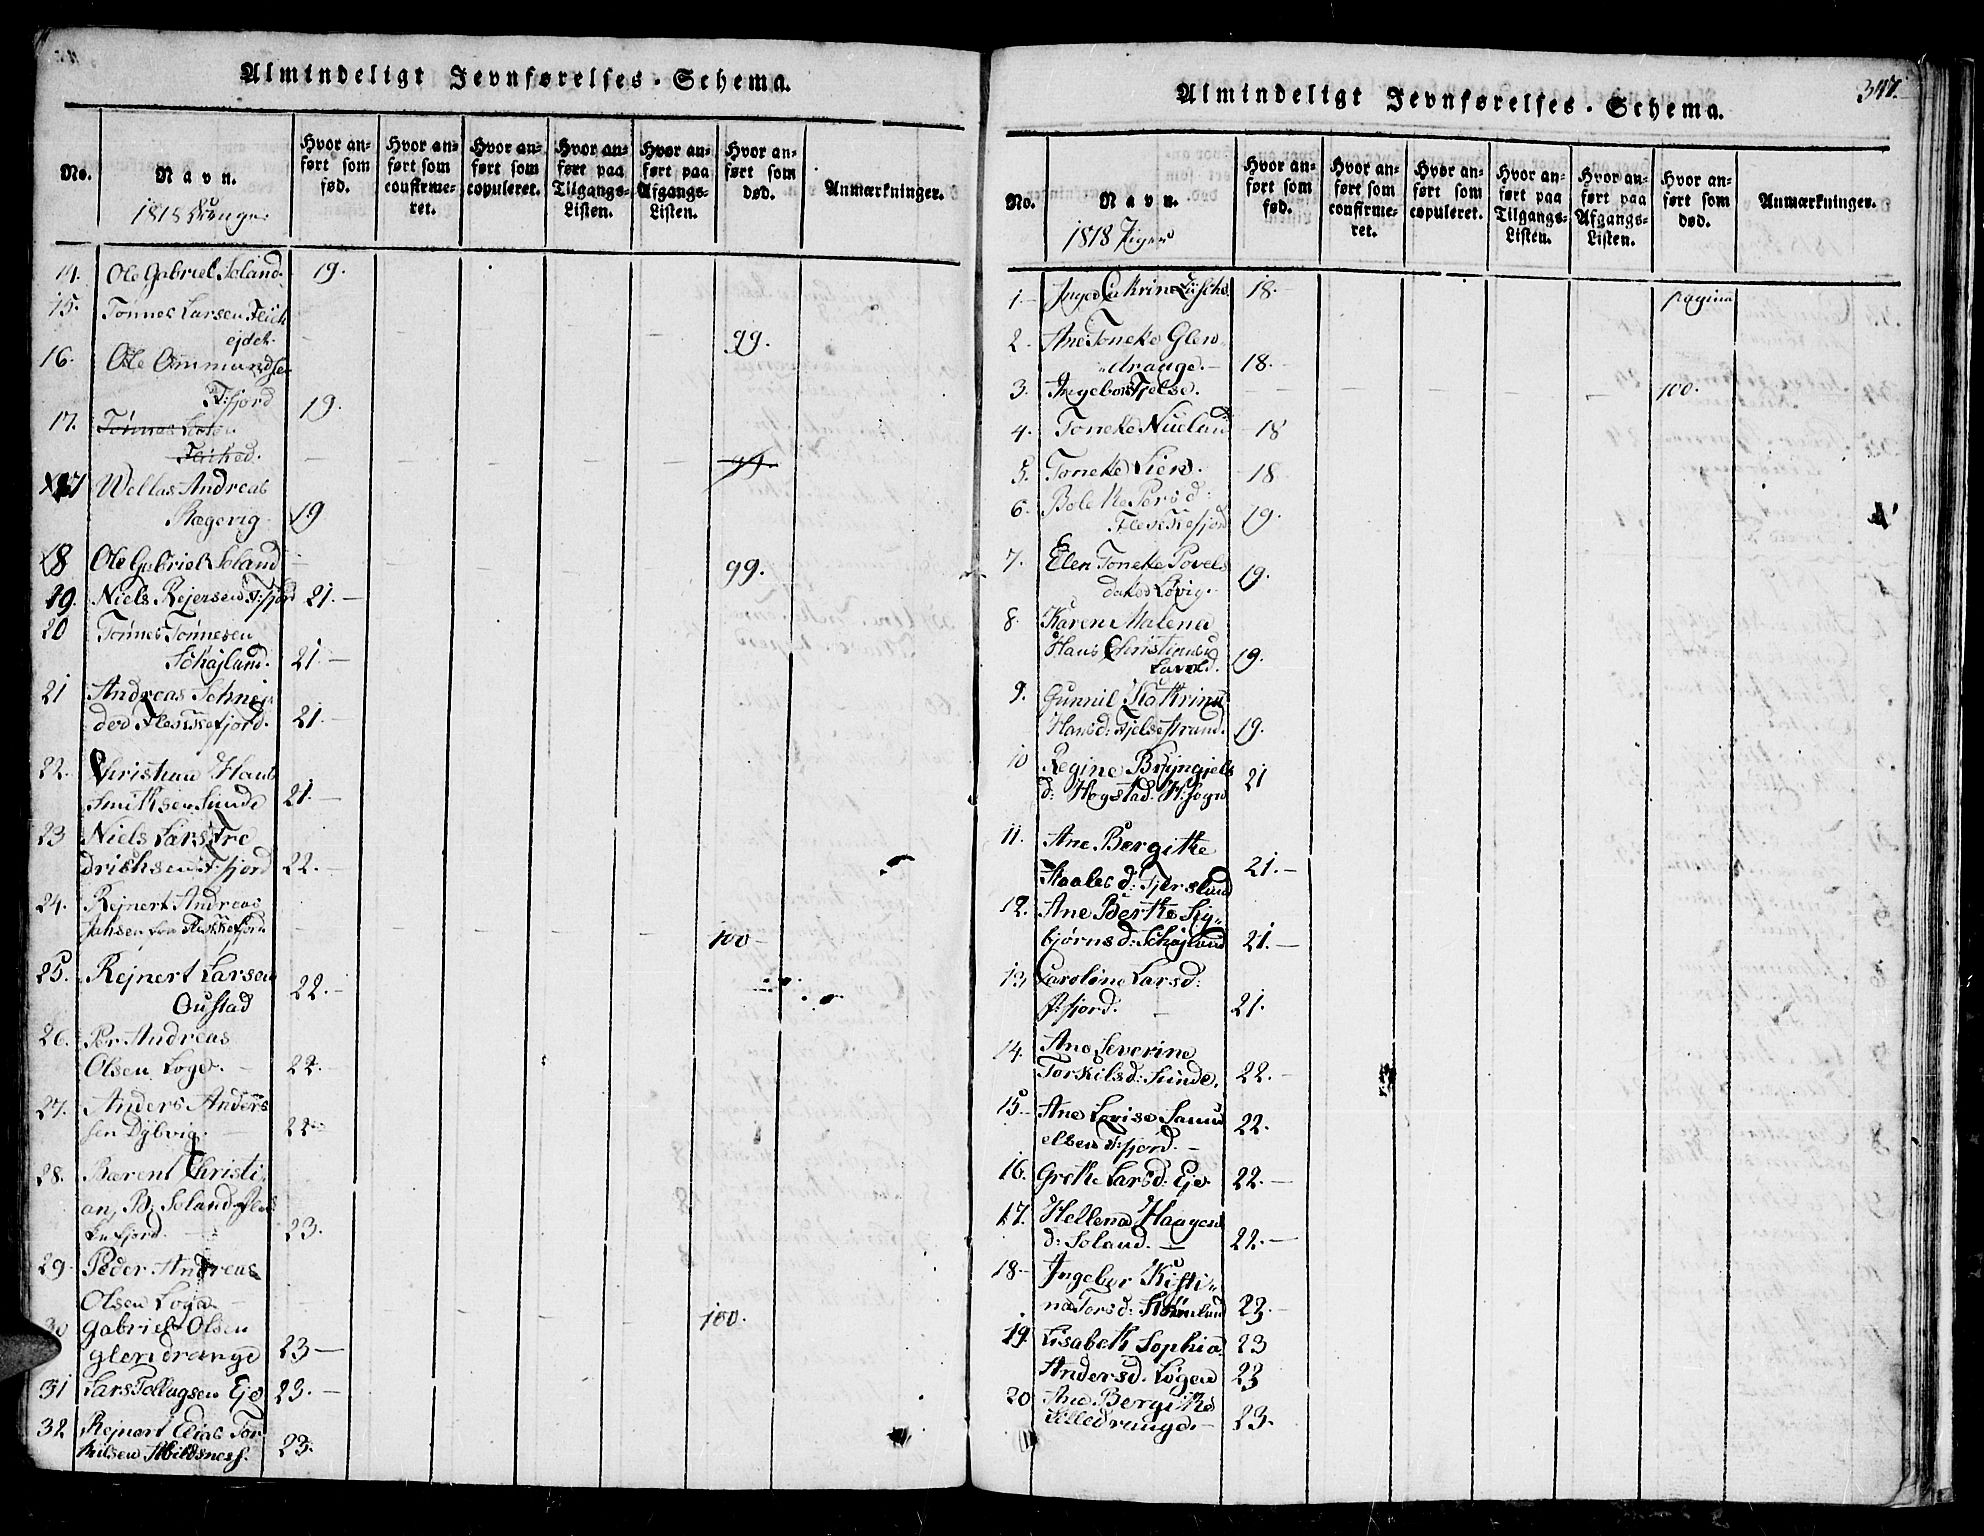 Almindeligt Jevnførelses-Schema.
No.
Navn.
Hvor anført som fød.
Hvor anført som confirmeret.
Hvor anført som copuleret.
Hvor anført paa Tilgangs-Listen.
Hvor anført paa Afgangs-Listen.
Hvor anført som død.
Anmærkninger.
1818 Drenge
14. Ole Gabriel Soland. 19.
15. Tønnes Larsen
99.
16. Ole Ommundsen
F:fjord 19.
17. Tønnes
99.
17 Andreas
Rægevig 19
18 Ole Gabriel Soland 99.
19. Niels Rejersen F:fjord 21.
20 Tønnes Tønnesen
21.
21 Andreas Schnei-
der Flekkefjord. 21.
22. Christian Hans
Smithsen Sunde 21.
23 Niels Lars Fre
drichsen F:fjord 22.
24. Rejnert Andreas
Flekkefjord 100
25. Rejnert Larsen
Oustad 22.
26. Per Andreas
Olsen Loge. 22.
27. Anders Anders
sen Dybvig. 22
28. Bærent Christi-
an, B. Soland Flek
kefjord. 23.
29. Peder Andreas
Olsen Loge
100.
30 Gabriel Olsen
Glendrange 23
31 Lars Tollagsen Eje 23.
32 Rejnert Elias Tor
kilsen 23.
347.
Almindeligt Jevnførelses-Schema.
No.
Navn.
Hvor anført som fød.
Hvor anført som confirmeret.
Hvor anført som copuleret.
Hvor anført paa Tilgangs-Listen.
Hvor anført paa Afgangs-Listen.
Hvor anført som død.
Anmærkninger.
1818 Piger
1. 18. pagina
2. Ane Toneke Glen
drange. 18.
3. Ingebor Fjelse. 100.
4. Toneke Nueland 18
5. Toneke Lien. 18
6. Bolette Persd:
Flekkefjord 19.
7. Elen Toneke Povels
datter Løvig. 19.
8. Karen Malena
Hans Christians
19.
9. Gunnil Kathrine
Hansd: Fjelsestrand. 19.
10 Regine Bryngiels
d: Hogstad. H:sogn 21
11. Ane Bergitte
21.
12. Ane Berthe Sig-
bjørnsd: 21.
13 Caroline Larsd:
F:fjord. 21.
14. Ane Severine
Torkilsd: Sunde. 22.
15. Ane Lovise Samu
elsen F:fjord. 22.
16. Grethe Larsd: Eje 22.
17. Hellena Haagens
d: Soland. 22.
18 Ingebor Kisti-
na Torsd: 23.
19. Lisabeth Sophia 23
Andersd. Løgen 23
20 Ane Bergitte
Lilledrange. 23.